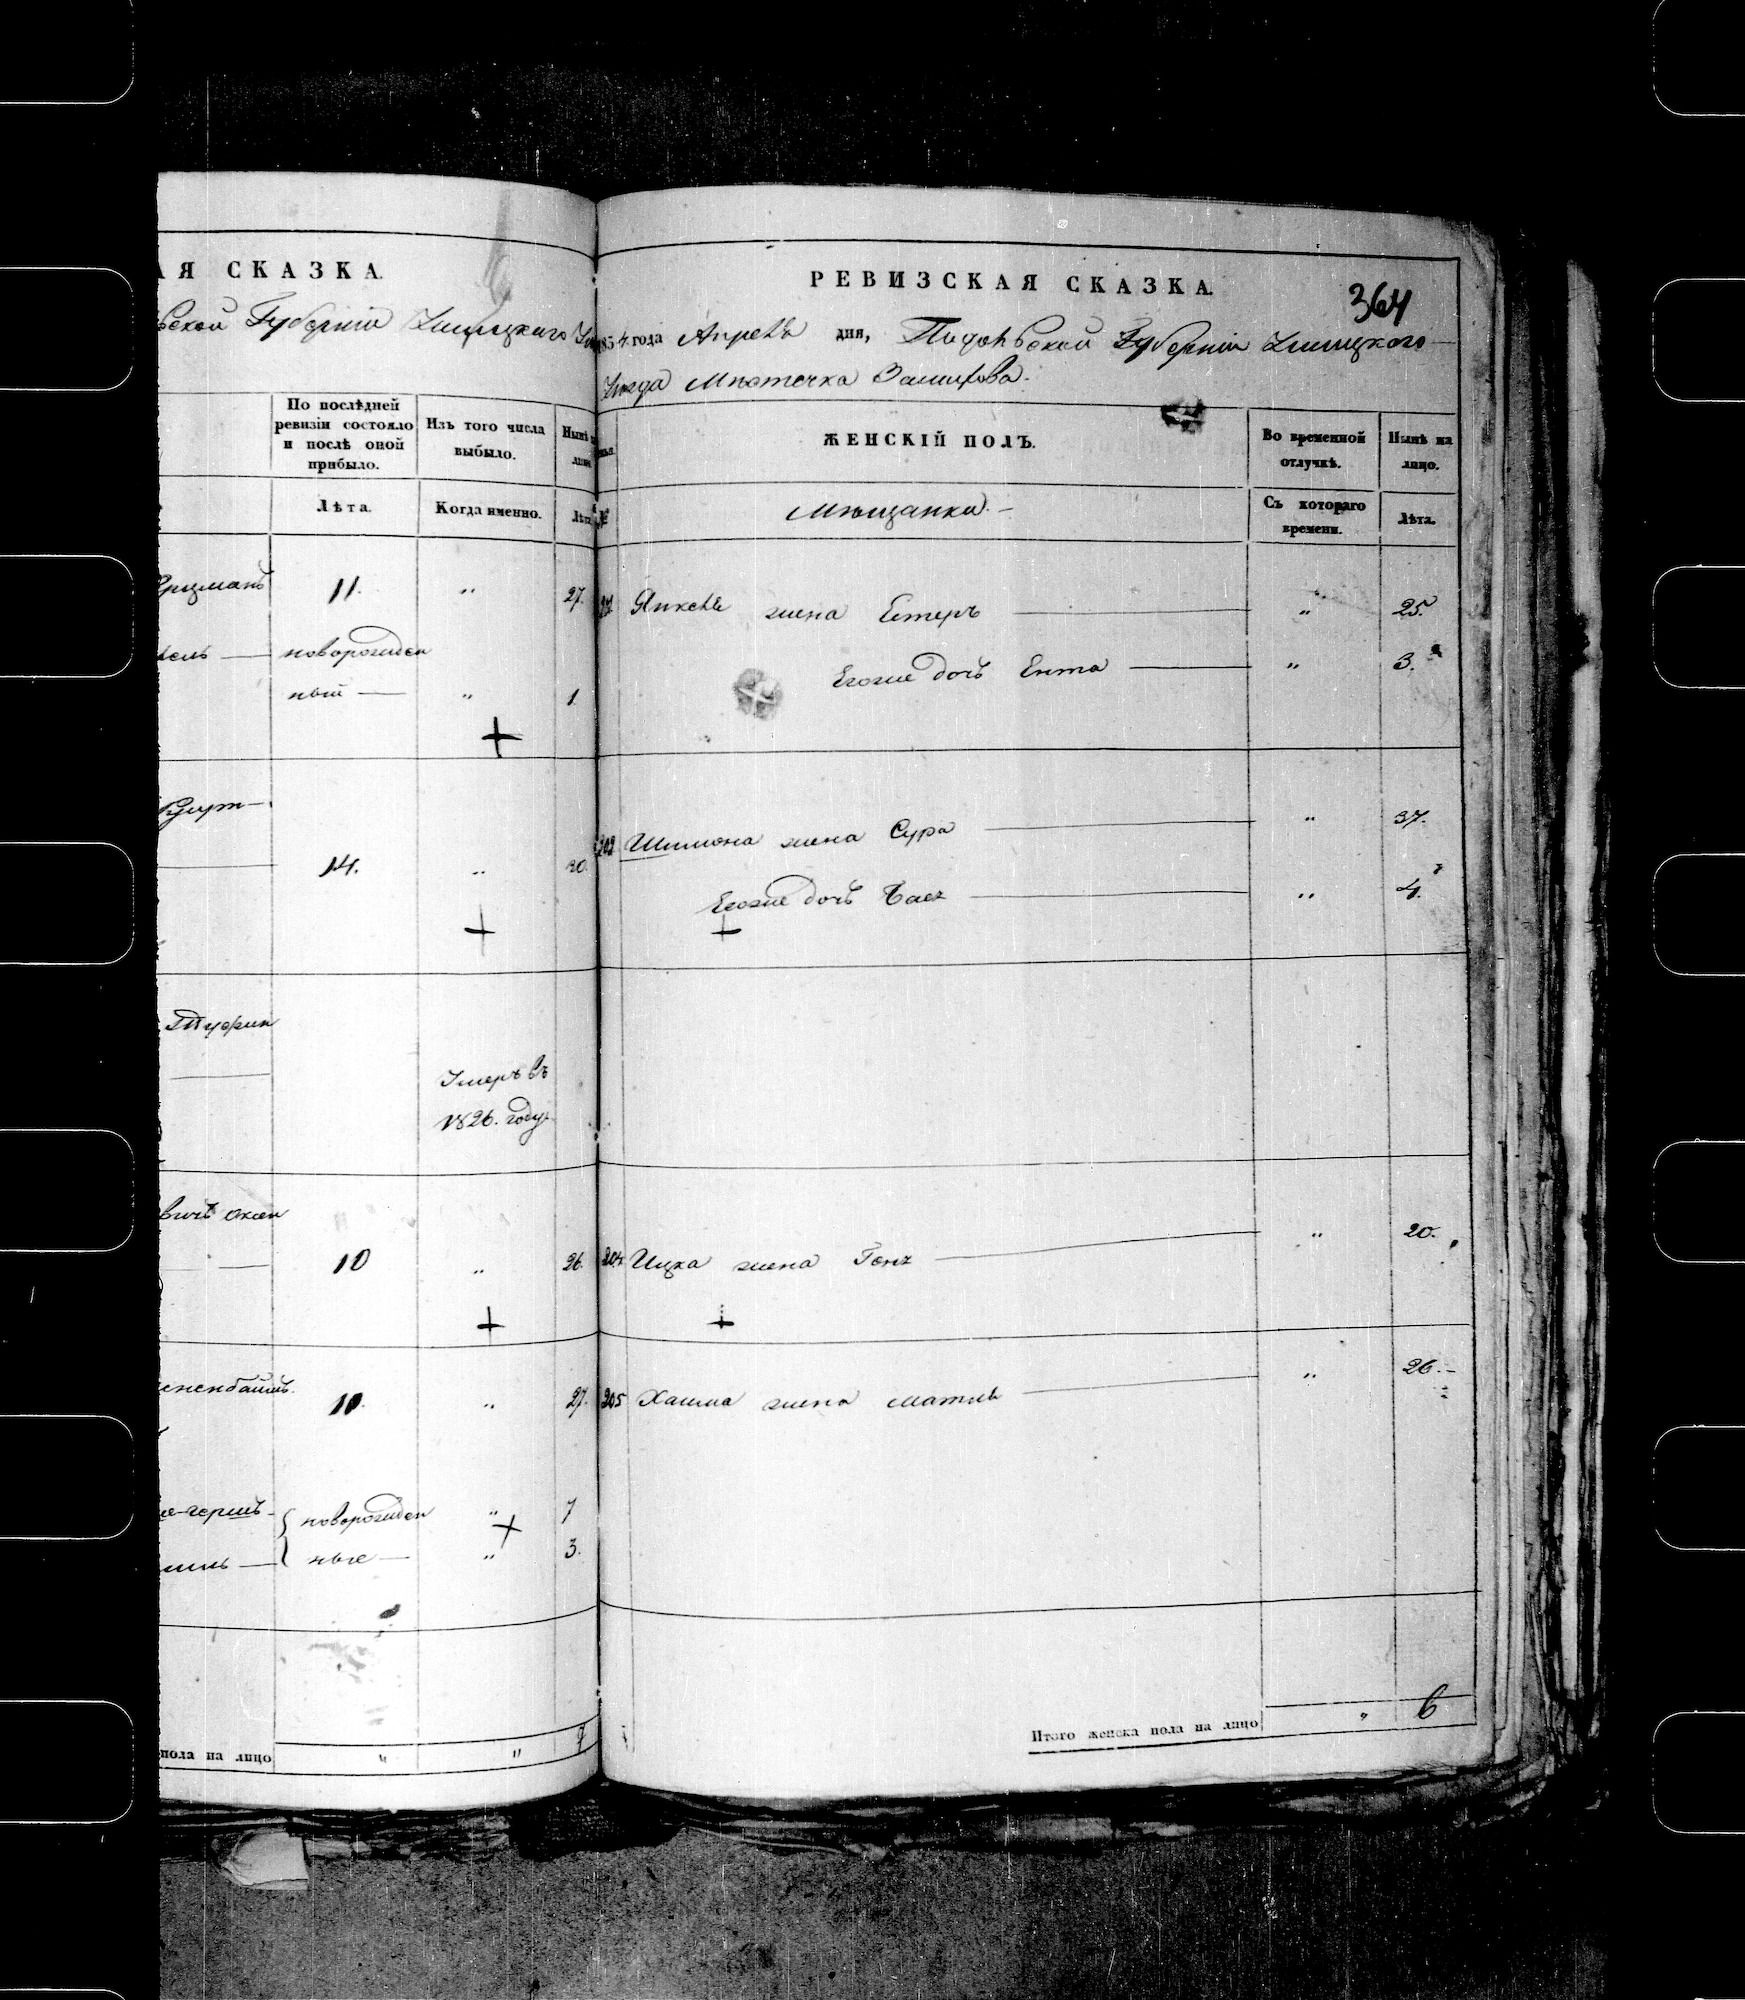 АЯ СКАЗКА.
ьской Губерніи Ушицкаго
По послѣдней
ревизіи состояло
и послѣ оной
прибыло.
Изъ того числа
выбыло.
Нынѣ
Лѣта.
Когда именно.
Лѣта
11. " 27.
новорожден
ный — " 1
14. " 30.
Умеръ въ
1826. году
10 " 26.
10. " 27.
новорожден " 7
ные — " 3.
пола на лицо " "
РЕВИЗСКАЯ СКАЗКА.
364
1854 года Апреля дня, Подольской Губерніи Ушицкаго
Уезда Мѣстечка Замихова.
ЖЕНСКІЙ ПОЛЪ.
Во временной
отлучкѣ.
Нынѣ на
лицо.
№
Мѣщанки.
Съ котораго
времени.
Лѣта.
Янкеля жена Естеръ — " 25.
Егоже дочь Ента — " 3.
202 Шимона жена Сура — " 37.
Егоже дочь — " 4.
204 Ицка жена — " 20.
205 Хаима жена — " 26.
Итого женска пола на лицо " 6